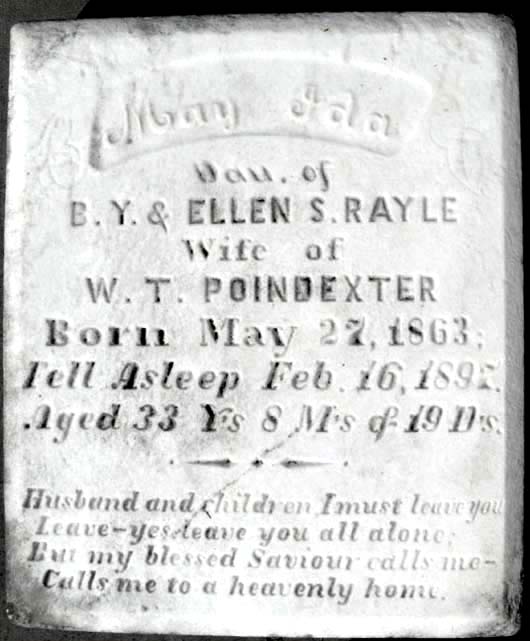 May Ida
Dau. of
B. Y. & ELLEN S. RAYLE
Wife of
W. T. POINDEXTER
Born May 27, 1863;
Fell Asleep Feb. 16, 1897.
Aged 33 Ys 8 M's & 19 D's.
Husband and children, I must leave you
Leave-yes-leave you all alone;
But my blessed Saviour calls me-
Calls me to a heavenly home.